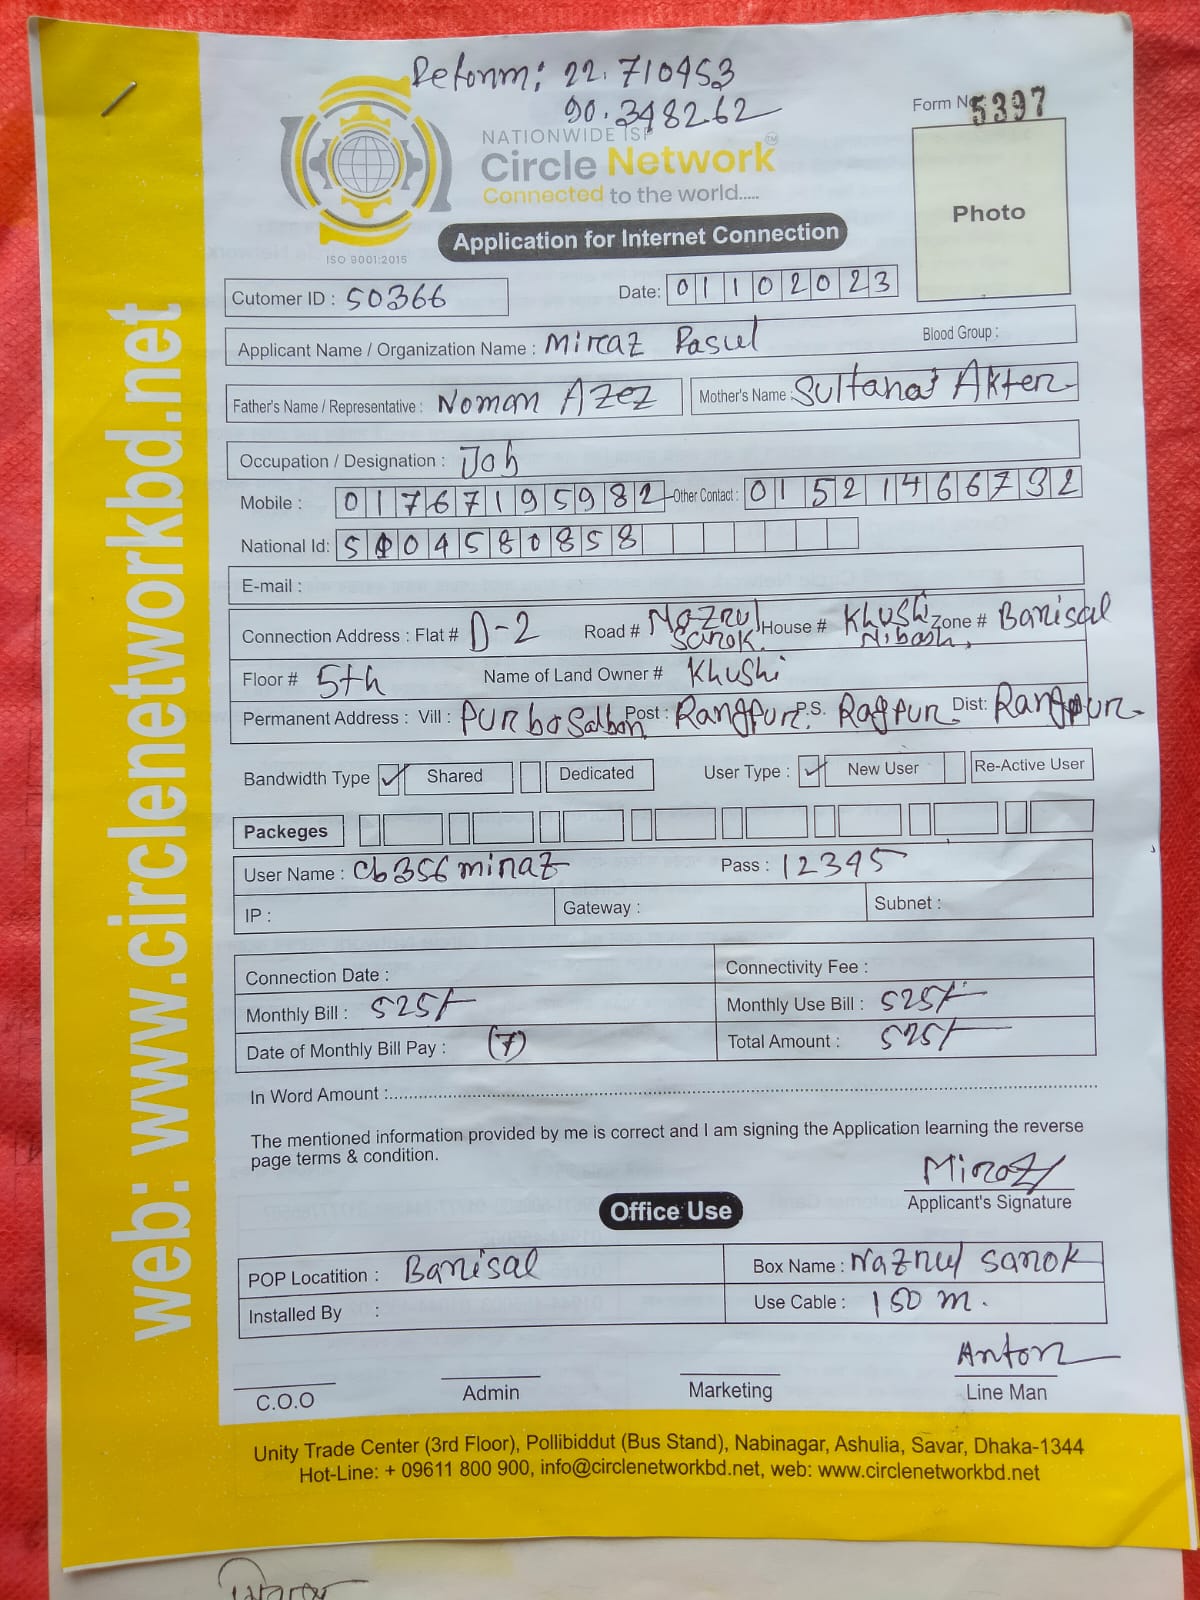 Reform: 22.710453
90.348262
Form No 5397
NATIONWIDE ISP
Circle Network TM
Connected to the world.....
Photo
ISO 9001:2015
Application for Internet Connection
Cutomer ID : 50366 Date: 01102023
Applicant Name / Organization Name : Miraz Rasul Blood Group :
Father's Name / Representative : Noman Azez Mother's Name : Sultana Akter
Occupation / Designation : Job
Mobile : 01767195982 Other Contact : 01521466732
National Id: 5104580858
E-mail :
Connection Address : Flat # D-2 Road # Nazrul Sarok. House # Khushi Nibash, Zone # Barisal
Floor # 5th Name of Land Owner # Khushi
Permanent Address : Vill : Purbo Salbon Post : Rangpur. P.S. Ragpur Dist: Rangpur
Bandwidth Type ✓ Shared Dedicated User Type : ✓ New User Re-Active User
Packeges
User Name : cb356miraz Pass : 12345
IP : Gateway : Subnet :
Connection Date : Connectivity Fee :
Monthly Bill : 525/- Monthly Use Bill : 525/-
Date of Monthly Bill Pay : (7) Total Amount : 525/-
In Word Amount :
The mentioned information provided by me is correct and I am signing the Application learning the reverse
page terms & condition.
Miraz
Applicant's Signature
Office Use
POP Locatition : Barisal Box Name : Nazrul Sarok
Installed By : Use Cable : 150 m.
Anton
C.O.O Admin Marketing Line Man
Unity Trade Center (3rd Floor), Pollibiddut (Bus Stand), Nabinagar, Ashulia, Savar, Dhaka-1344
Hot-Line: + 09611 800 900, info@circlenetworkbd.net, web: www.circlenetworkbd.net
web: www.circlenetworkbd.net